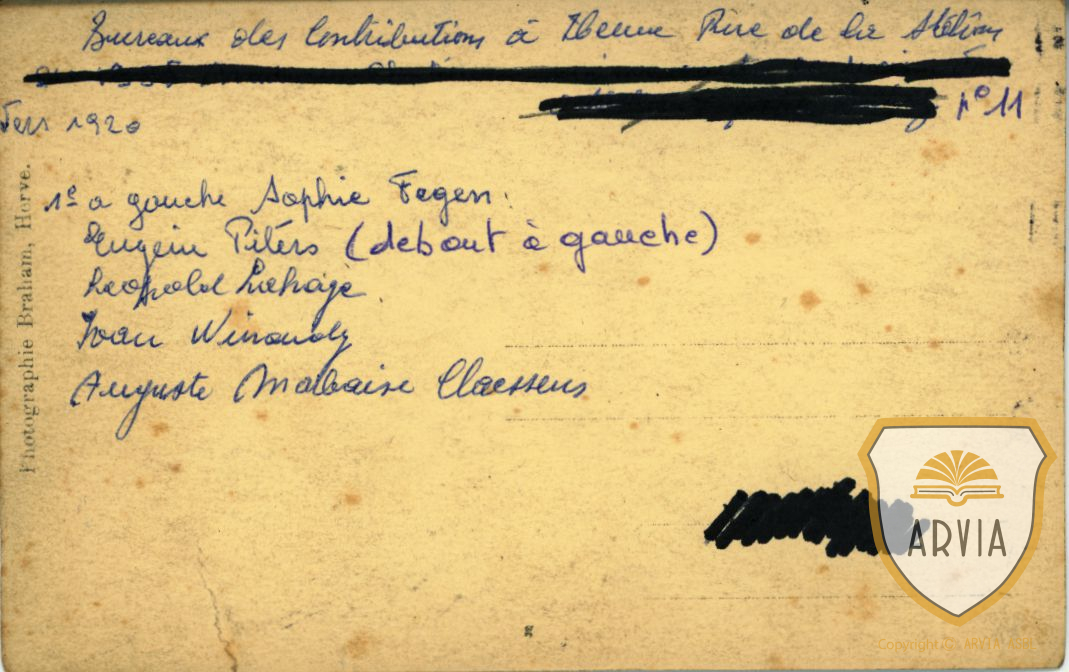 Bureaux des Contributions à Rue de la Station
n° 11
Vers 1920
1e a gauche Sophie Fegen.
Eugein Piters (debout à gauche)
Léopold Lahaye
Ivan Winandy
Auguste Malvaise Claessens
Photographie Braham, Herve.
ARVIA
Copyright © ARVIA ASBL